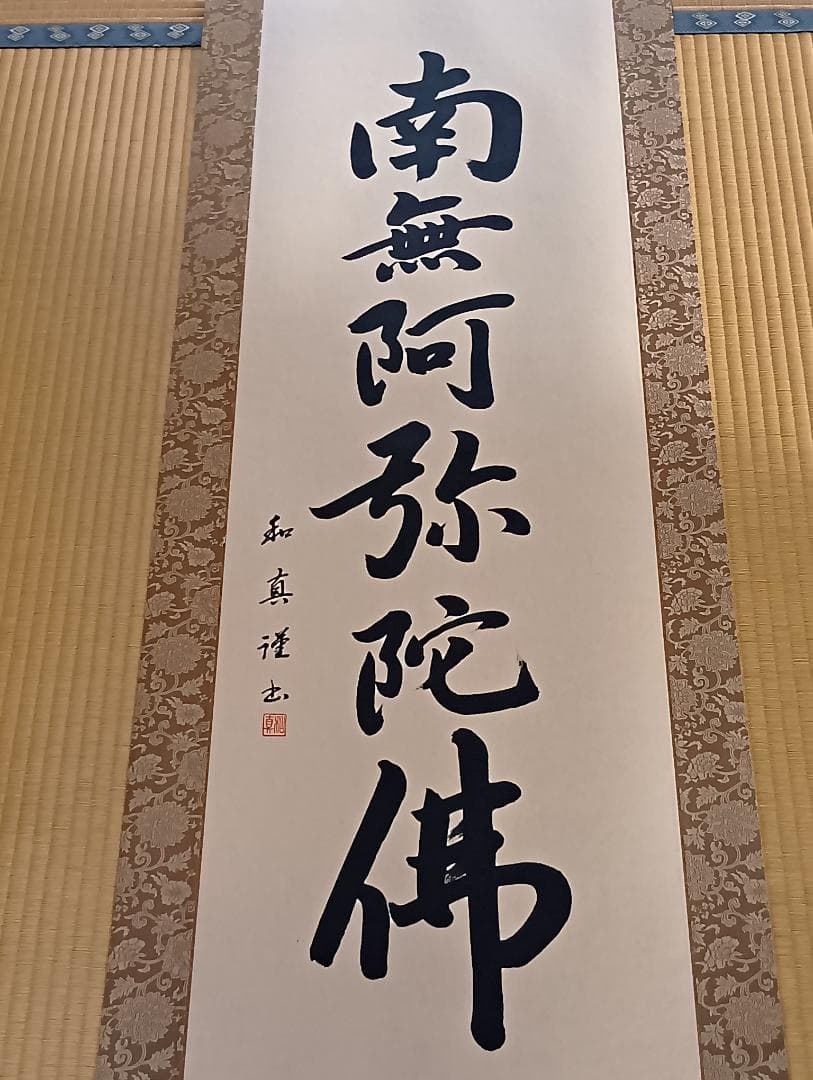 南無阿弥陀佛
和真謹書